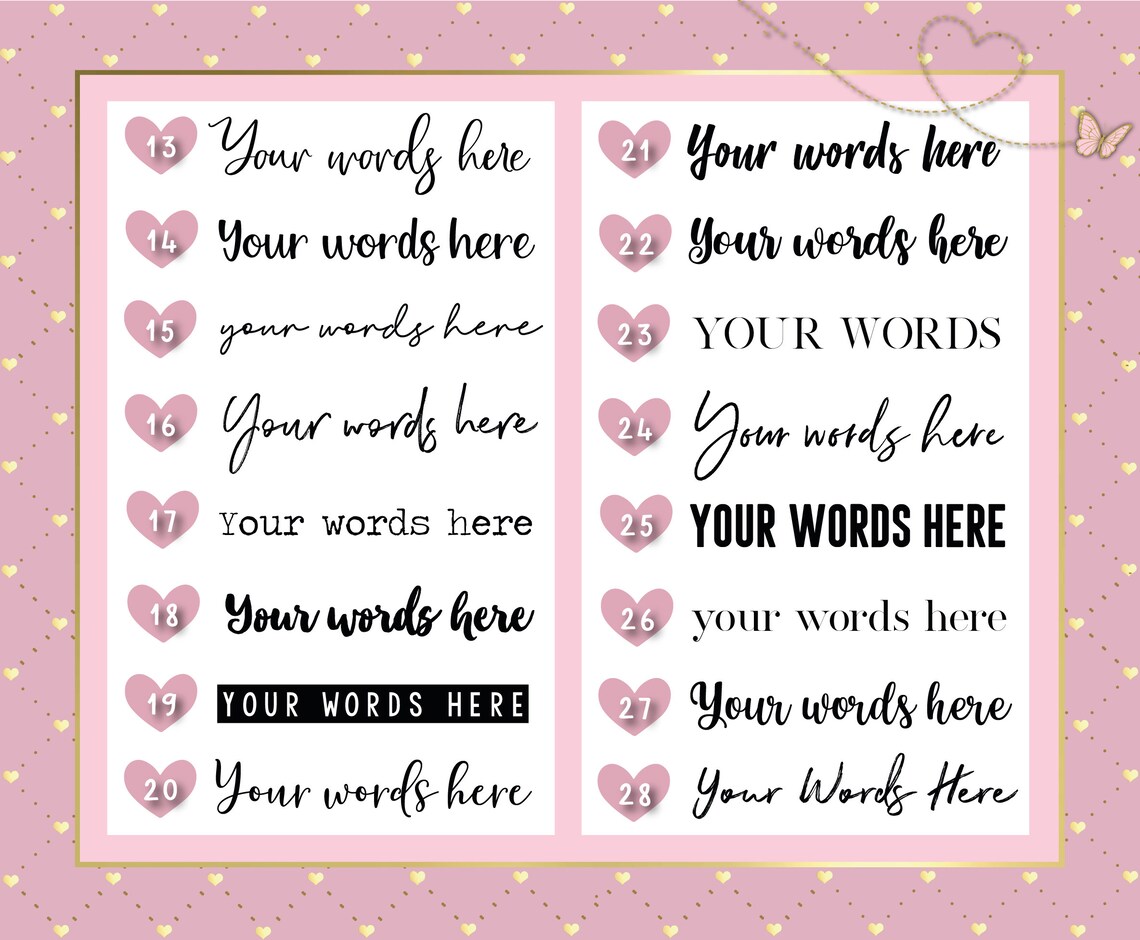 13 Your words here
14 Your words here
15 your words here
16 Your words here
17 Your words here
18 Your words here
19 YOUR WORDS HERE
20 Your words here
21 Your words here
22 Your words here
23 YOUR WORDS
24 Your words here
25 YOUR WORDS HERE
26 your words here
27 Your words here
28 Your Words Here